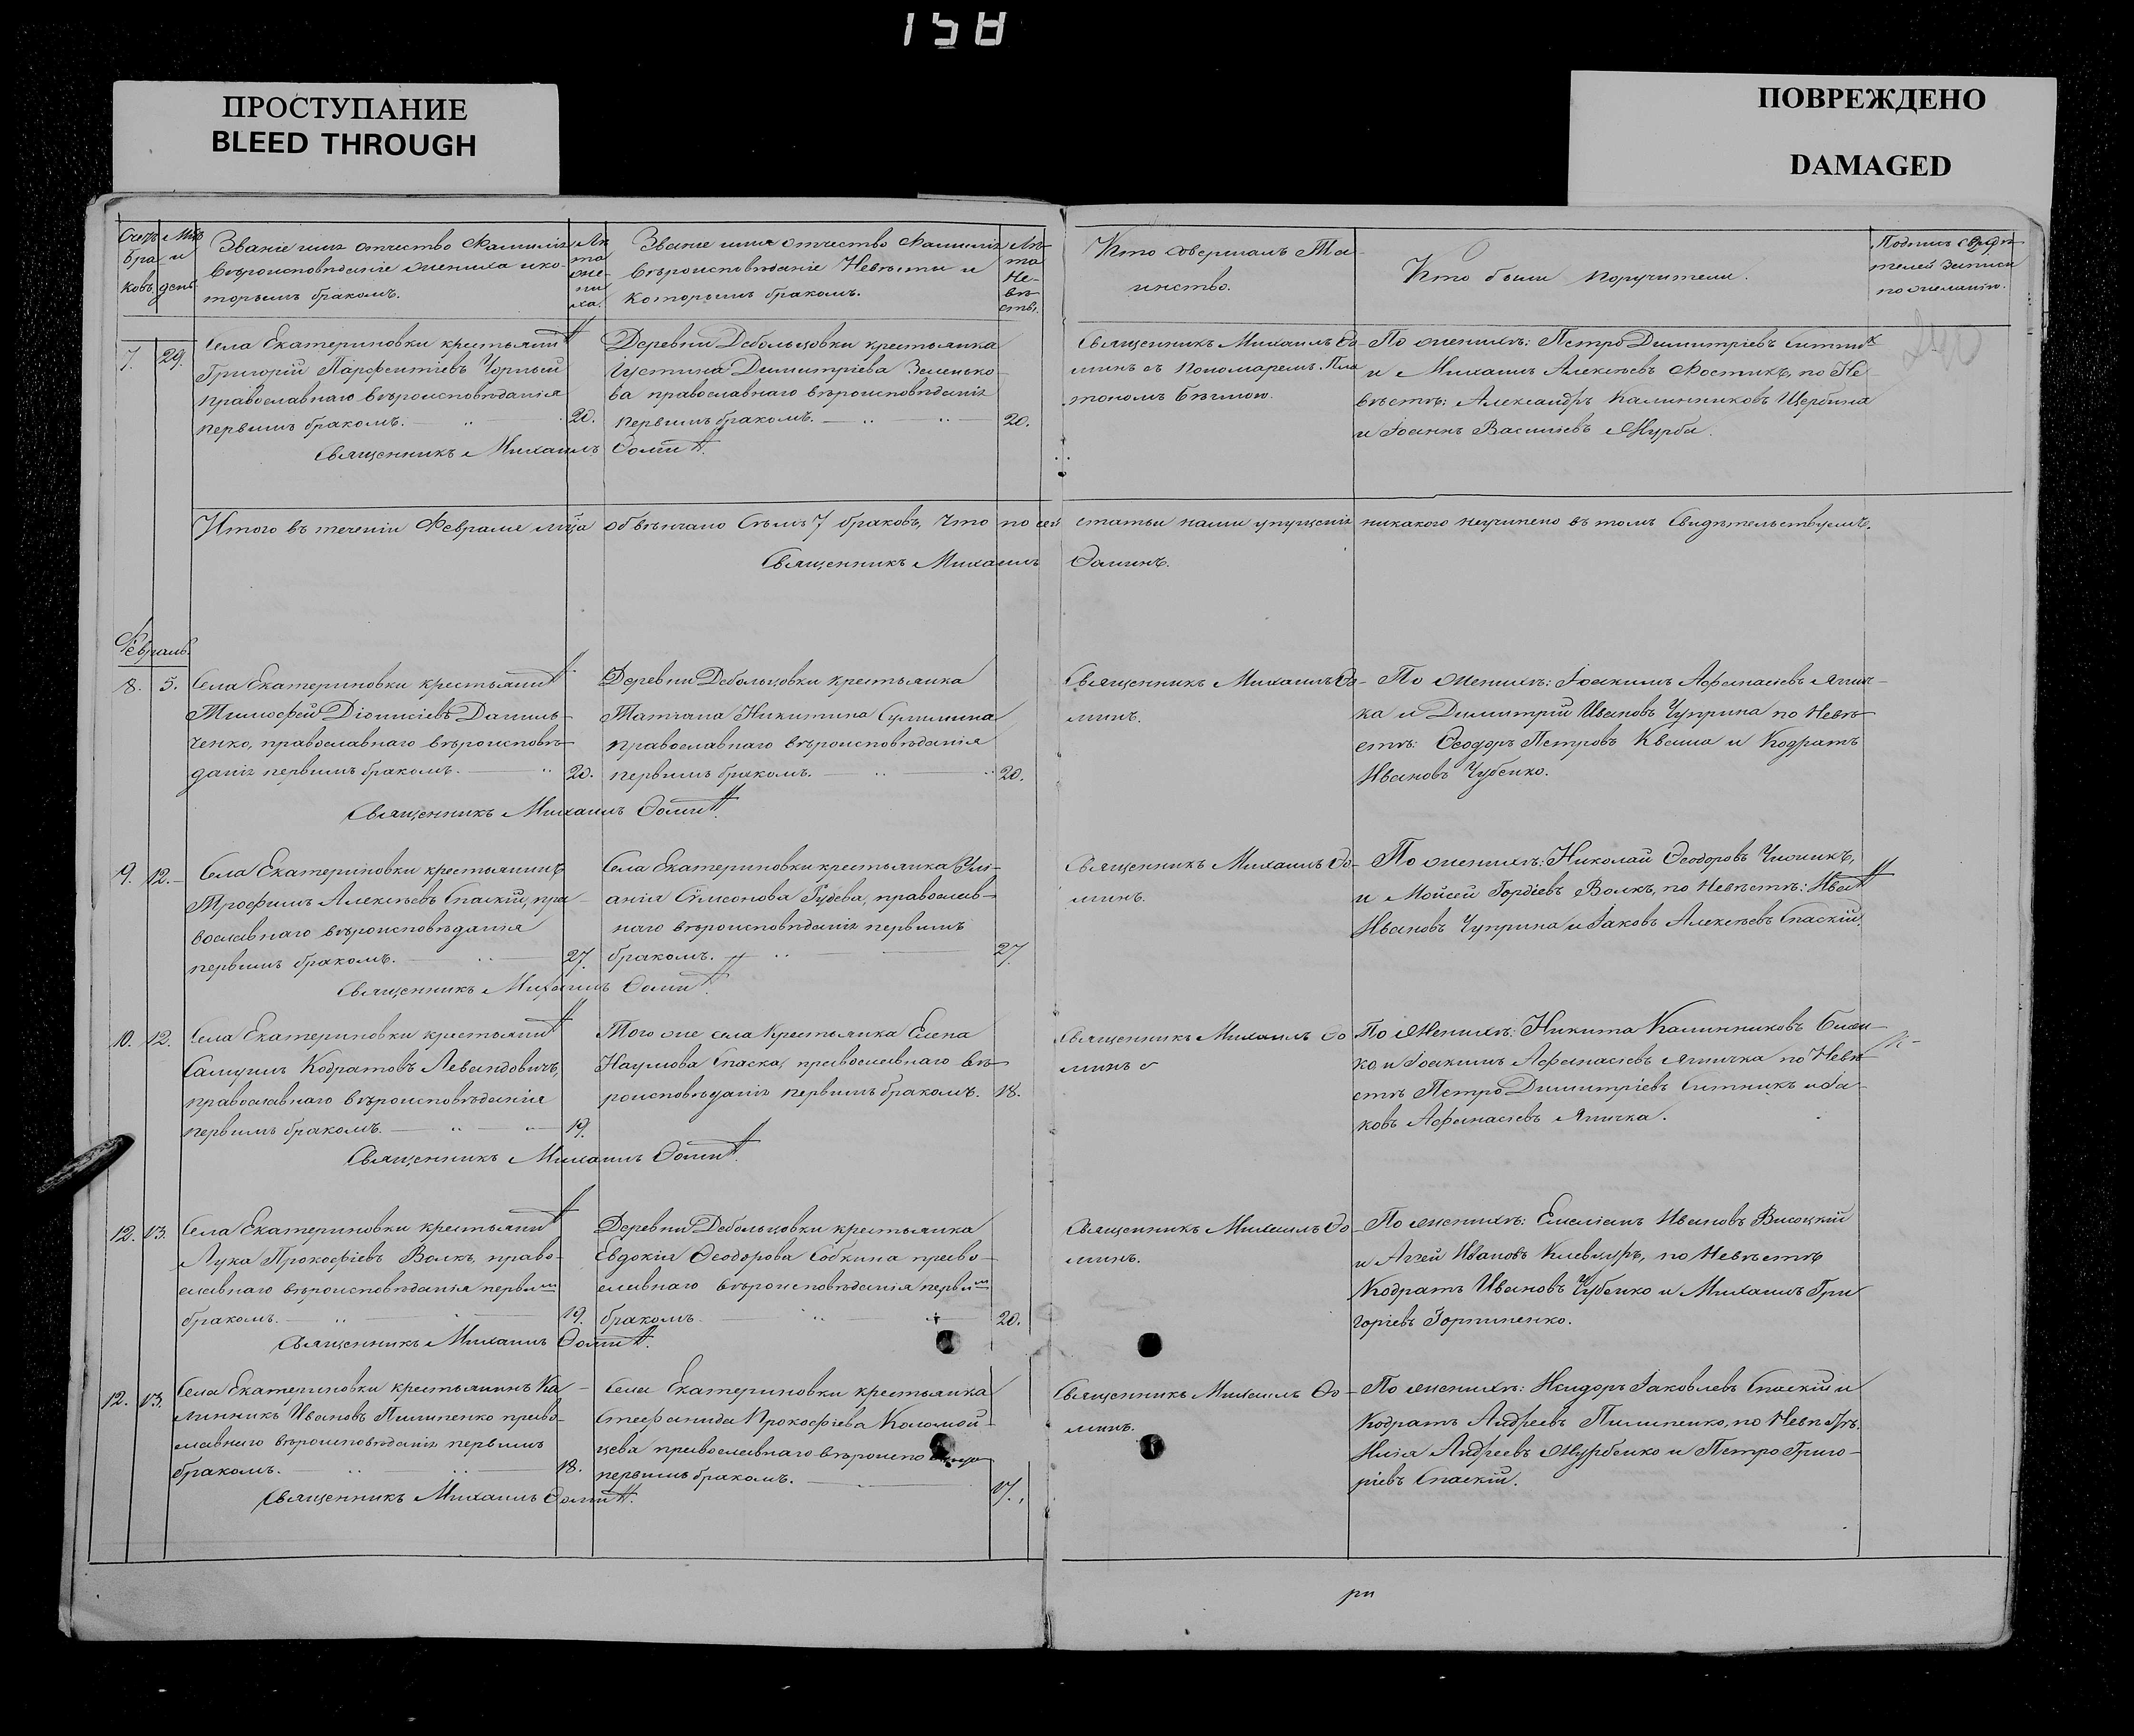 158
ПРОСТУПАНИЕ
BLEED THROUGH
ПОВРЕЖДЕНО
DAMAGED
Счетъ бра ковъ
Мѣс. и день
Званіе имя отчество Фамилія
вѣроисповѣданіе жениха и ко-
торымъ бракомъ.
Лѣ та же ни ха.
Званіе имя отчество Фамилія
вѣроисповѣданіе Невѣсты и
которымъ бракомъ.
Лѣ- та Не- вѣ- сты.
Кто совершалъ Та-
инство.
Кто были поручители.
Подпись свидѣ-
телей записи
по желанію.
7. 29.
Села Екатериновки крестьянинъ
Григорій Парфентіевъ Чорный
православнаго вѣроисповѣданія
первымъ бракомъ. 20.
Деревни Дебольцовки крестьянка
Іустина Димитріева Зеленско-
ва православнаго вѣроисповѣданія
первымъ бракомъ. 20.
Священникъ Михаилъ Ѳо-
минъ съ Пономаремъ Пла
тономъ
По женихѣ: Петро Димитріевъ Ситникъ
и Михаилъ Алексѣевъ Костикъ, по Не-
вѣстѣ: Александръ Калинниковъ Щербина
и Іоаннъ Василіевъ Журба.
Священникъ Михаилъ Ѳоминъ.
Итого въ теченіи Февраля мѣца обвѣнчано Седмь 7 браковъ, что по сей статьи нами упущенія никакого неучинено въ томъ Свидѣтельствуемъ.
Священникъ Михаилъ Ѳоминъ.
Февраль.
8. 5.
Села Екатериновки крестьянинъ
Тимофей Діонисіевъ Даниль-
ченко, православнаго вѣроисповѣ-
данія первымъ бракомъ. 20.
Деревни Дебольцовки крестьянка
Татіана Никитина
православнаго вѣроисповѣданія
первымъ бракомъ. 20.
Священникъ Михаилъ Ѳо-
минъ.
По женихѣ: Іоакимъ Афанасіевъ Ягнич-
ка и Димитрій Ивановъ Чуприна по Невѣ-
стѣ: Ѳеодоръ Петровъ Кваша и Кодратъ
Ивановъ Чубенко.
Священникъ Михаилъ Ѳоминъ.
9. 12.
Села Екатериновки крестьянинъ
Трофимъ Алексѣевъ Спаскій, пра-
вославнаго вѣроисповѣданія
первымъ бракомъ. 27.
Села Екатериновки крестьянка Улі-
анія Сѵмеонова Гудева, православ-
наго вѣроисповѣданія первымъ
бракомъ. 27
Священникъ Михаилъ Ѳо-
минъ.
По женихѣ: Николай Ѳеодоровъ Чижикъ,
и Мойсей Гордіевъ Волкъ, по Невѣстѣ: Иванъ
Ивановъ Чуприна и Іаковъ Алексѣевъ Спаскій.
Священникъ Михаилъ Ѳоминъ.
10. 12.
Села Екатериновки крестьянинъ
Самуилъ Кодратовъ Левандовичъ,
православнаго вѣроисповѣданія
первымъ бракомъ. 19.
Того же села крестьянка Елена
Наумова Спаска, православнаго вѣ-
роисповѣданія первымъ бракомъ. 18.
Священникъ Михаилъ Ѳо
минъ
По женихѣ: Никита Калинниковъ
ко и Іоакимъ Афанасіевъ Ягничка по Невѣ-
стѣ Петро Димитріевъ Ситникъ и Іа-
ковъ Афанасіевъ Ягничка.
Священникъ Михаилъ Ѳоминъ.
12. 13.
Села Екатериновки крестьянинъ
Лука Прокофіевъ Волкъ, право-
славнаго вѣроисповѣданія первым
бракомъ. 19.
Деревни Дебольцовки крестьянка
Евдокія Ѳеодорова Собкина право-
славнаго вѣроисповѣданія первым
бракомъ. 20.
Священникъ Михаилъ Ѳо-
минъ.
По женихѣ: Емеліанъ Ивановъ Височкій
и Аггей Ивановъ, по Невѣстѣ
Кодратъ Ивановъ Чубенко и Михаилъ Гри
горіевъ Горпиненко.
Священникъ Михаилъ Ѳоминъ.
12. 13.
Села Екатериновки крестьянинъ Ка-
линникъ Ивановъ Пилипенко право-
славнаго вѣроисповѣданія первымъ
бракомъ. 18.
Села Екатериновки крестьянка
Стефанида Прокофіева Коломой-
цева православнаго
первымъ бракомъ. 17.
Священникъ Михаилъ Ѳо-
минъ.
По женихѣ: Исидоръ Іаковлевъ Спаскій и
Кодратъ Андреевъ Пилипенко, по Невѣстѣ:
Илія Андреевъ Журбенко и Петро Григо-
ріевъ Спаскій.
Священникъ Михаилъ Ѳоминъ.